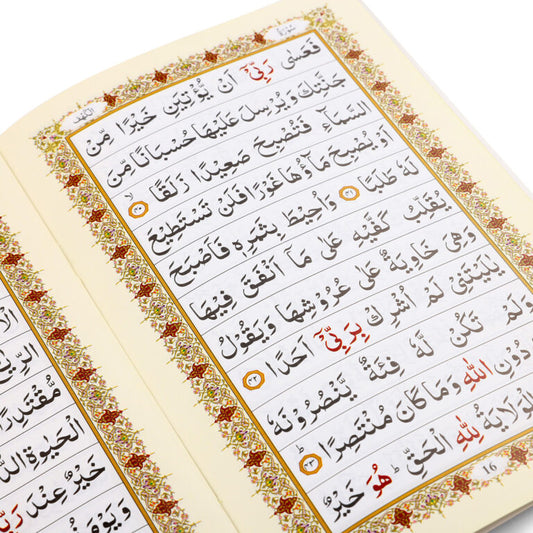 سُورَةُ
الْكَهْف
فَعَسٰى رَبِّيْٓ اَنْ يُّؤْتِيَنِ خَيْرًا مِّنْ
جَنَّتِكَ وَيُرْسِلَ عَلَيْهَا حُسْبَانًا مِّنَ
السَّمَآءِ فَتُصْبِحَ صَعِيْدًا زَلَقًا ﴿۴۰﴾
اَوْ يُصْبِحَ مَآؤُهَا غَوْرًا فَلَنْ تَسْتَطِيْعَ
لَهٗ طَلَبًا ﴿۴۱﴾ وَاُحِيْطَ بِثَمَرِهٖ فَاَصْبَحَ
يُقَلِّبُ كَفَّيْهِ عَلٰى مَآ اَنْفَقَ فِيْهَا
وَهِيَ خَاوِيَةٌ عَلٰى عُرُوْشِهَا وَيَقُوْلُ
يٰلَيْتَنِيْ لَمْ اُشْرِكْ بِرَبِّيْٓ اَحَدًا ﴿۴۲﴾
وَلَمْ تَكُنْ لَّهٗ فِئَةٌ يَّنْصُرُوْنَهٗ
دُوْنِ اللّٰهِ وَمَا كَانَ مُنْتَصِرًا ﴿۴۳﴾
الْوَلَايَةُ لِلّٰهِ الْحَقِّ هُوَ خَيْرٌ
16
الرِّيٰحُ
مُّقْتَدِرًا
الْحَيٰوةِ الدُّ
خَيْرٌ عِنْدَ رَبِّ
وَيَوْمَ